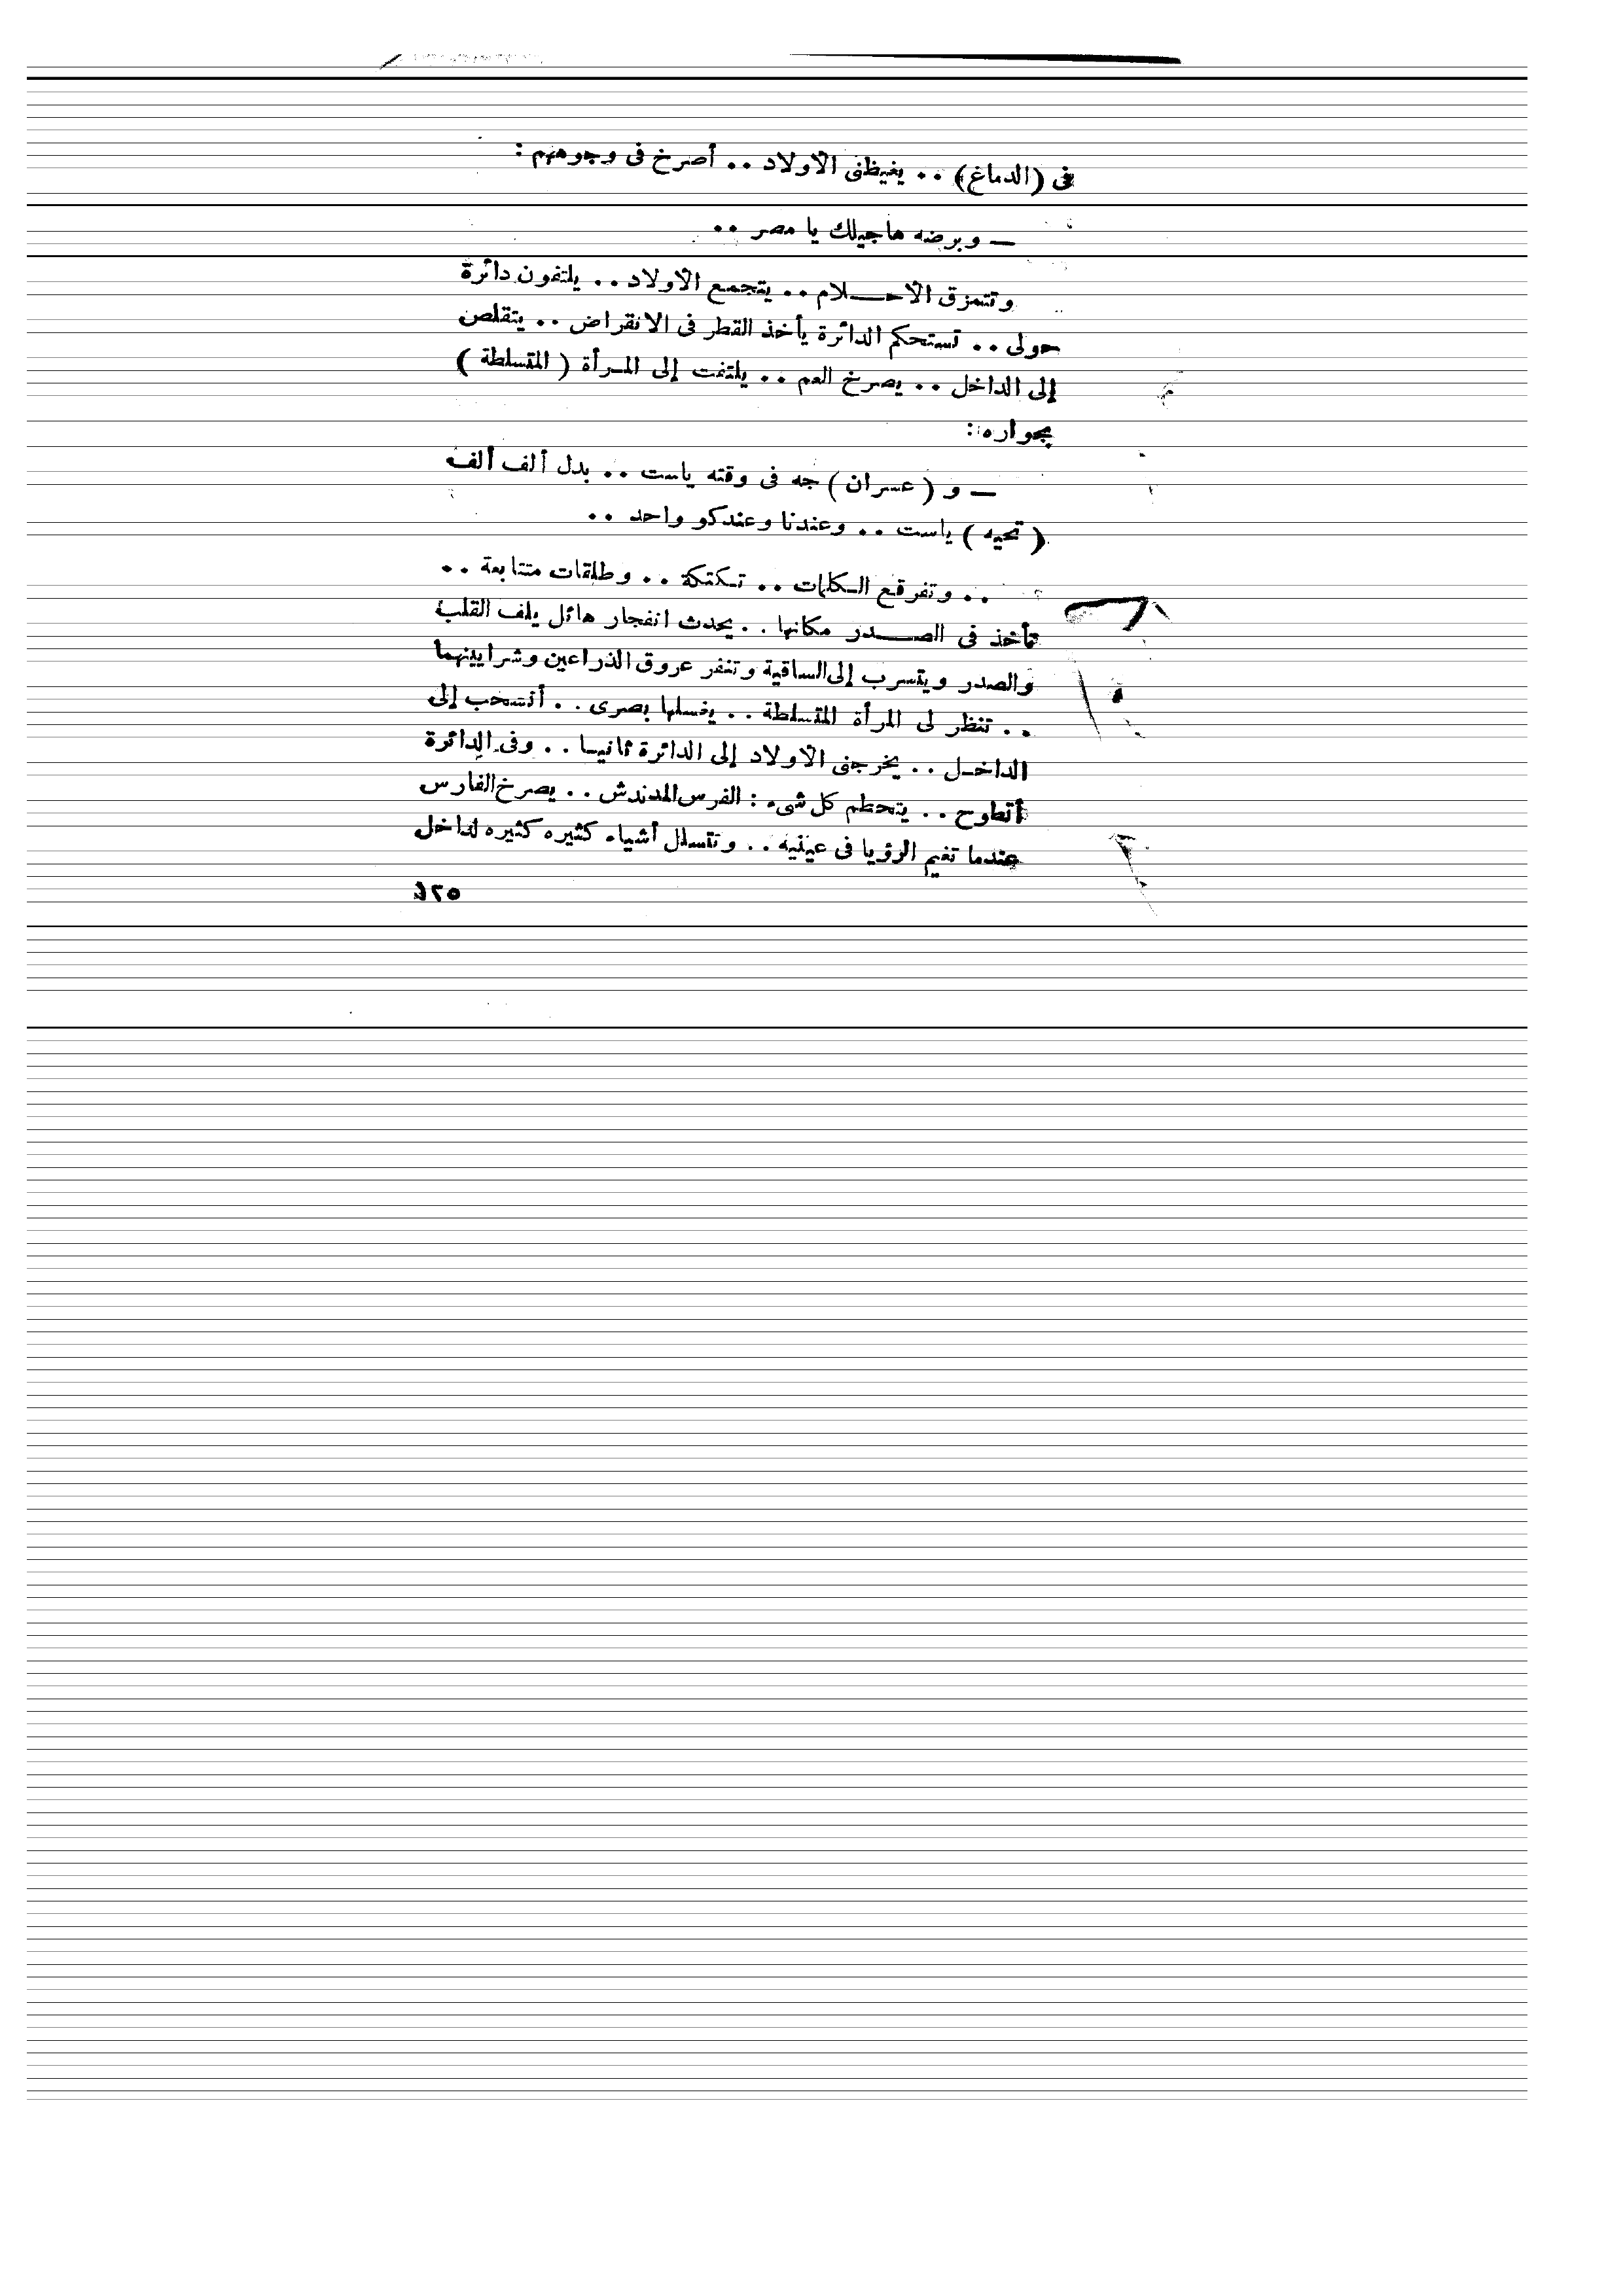 فى (الدماغ) .. يغيظنى الأولاد .. أصرخ فى وجوههم :
— وبرضه هاجيلك يا مصر ..
وتتمزق الأحـــلام .. يتجمع الأولاد .. يلتفون دائرة
حولى .. تستحكم الدائرة يأخذ القطر فى الانقراض .. يتقلص
إلى الداخل .. يصرخ العم .. يلتفت إلى المـرأة ( المتسلطة )
بجواره :
— و ( عسران ) جه فى وقته ياست .. بدل ألف ألف
( تحيه ) ياست .. وعندنا وعندكو واحد ..
.. وتفرقع الـكلمات .. تـكتكة .. وطلقات متتابعة ..
تأخذ فى الصـــدر مكانها .. يحدث انفجار هائل يلف القلب
والصدر ويتسرب إلى الساقية وتنفر عروق الذراعين وشرايينهما
.. تنظر لى المرأة المتسلطة .. يغسلها بصرى .. أنسحب إلى
الداخـل .. يخرجنى الأولاد إلى الدائرة ثانيـا .. وفى الدائرة
أتطوح .. يتحطم كل شىء : الفرس المدندش .. يصرخ الفارس
عندما تغيم الرؤيا فى عينيه .. وتتسلل أشياء كثيره كثيره لداخل